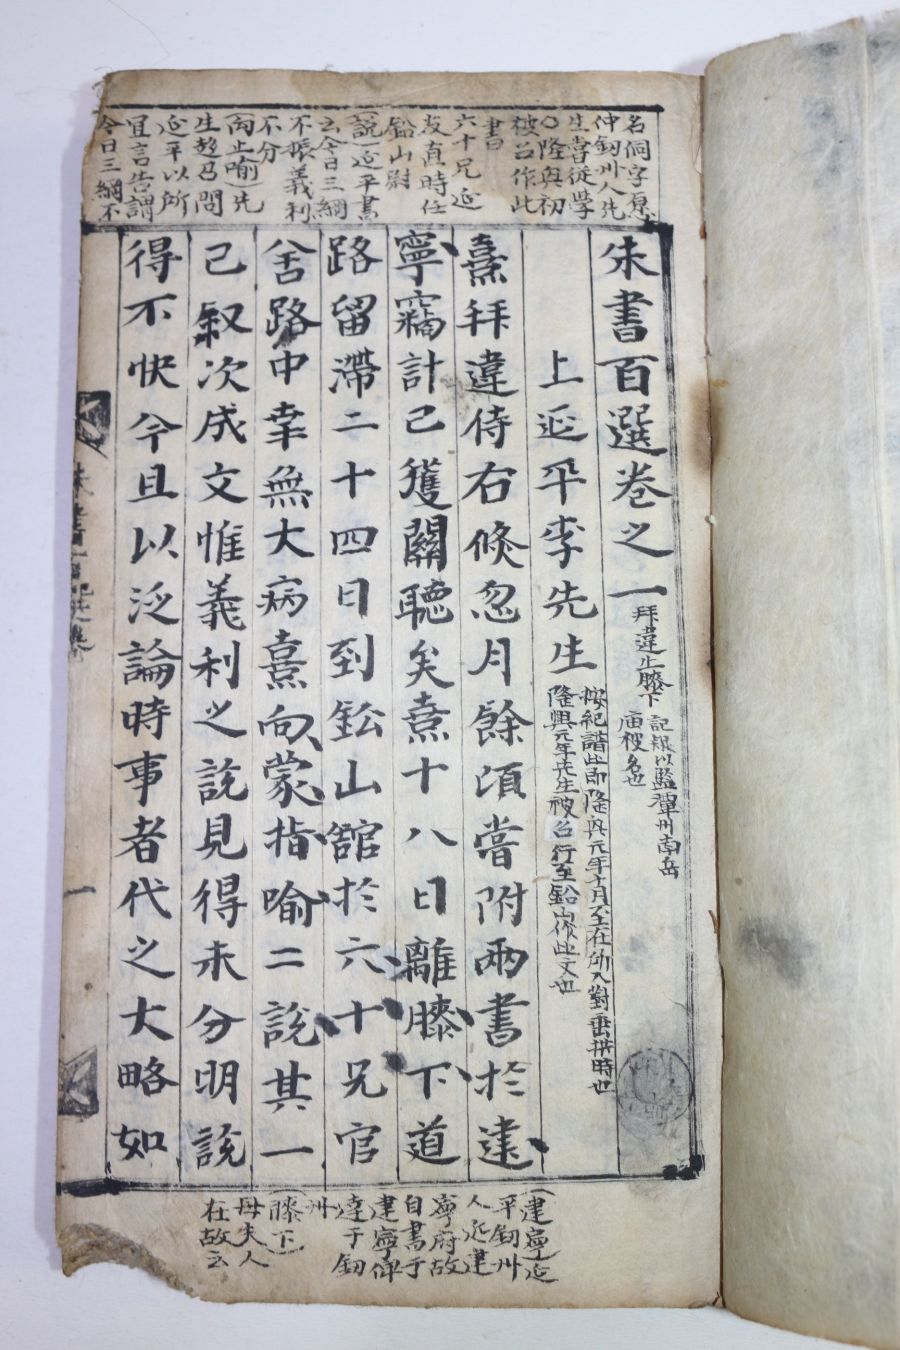 名侗字愿
仲劒州人先
生嘗從學
○隆興初
被召作此
書曰
六十兄延
友直時任
鉛山尉
(說)延平書
云今日三綱
不振義利
不分
(向止喻)先
生趍召問
延平以所
宜言告謂
今日三綱不
朱書百選卷之一
拜違止膝下
上延平李先生
按紀譜此即隆興元年十月
隆興元年先生被召行至鉛山作此文也
熹拜違侍右倏忽月餘頃嘗附兩書於建
寧竊計已獲關聽矣熹十八日離膝下道
路留滯二十四日到鈆山館於六十兄官
舍路中幸無大病熹向蒙指喻二說其一
已叙次成文惟義利之說見得未分明說
得不快今且以泛論時事者代之大略如
朱書百選卷
一
(建寧)延
平劒州
人延建
寧府故
自書于
建寧俾
達于劒
州
(膝下)
母夫人
在故云